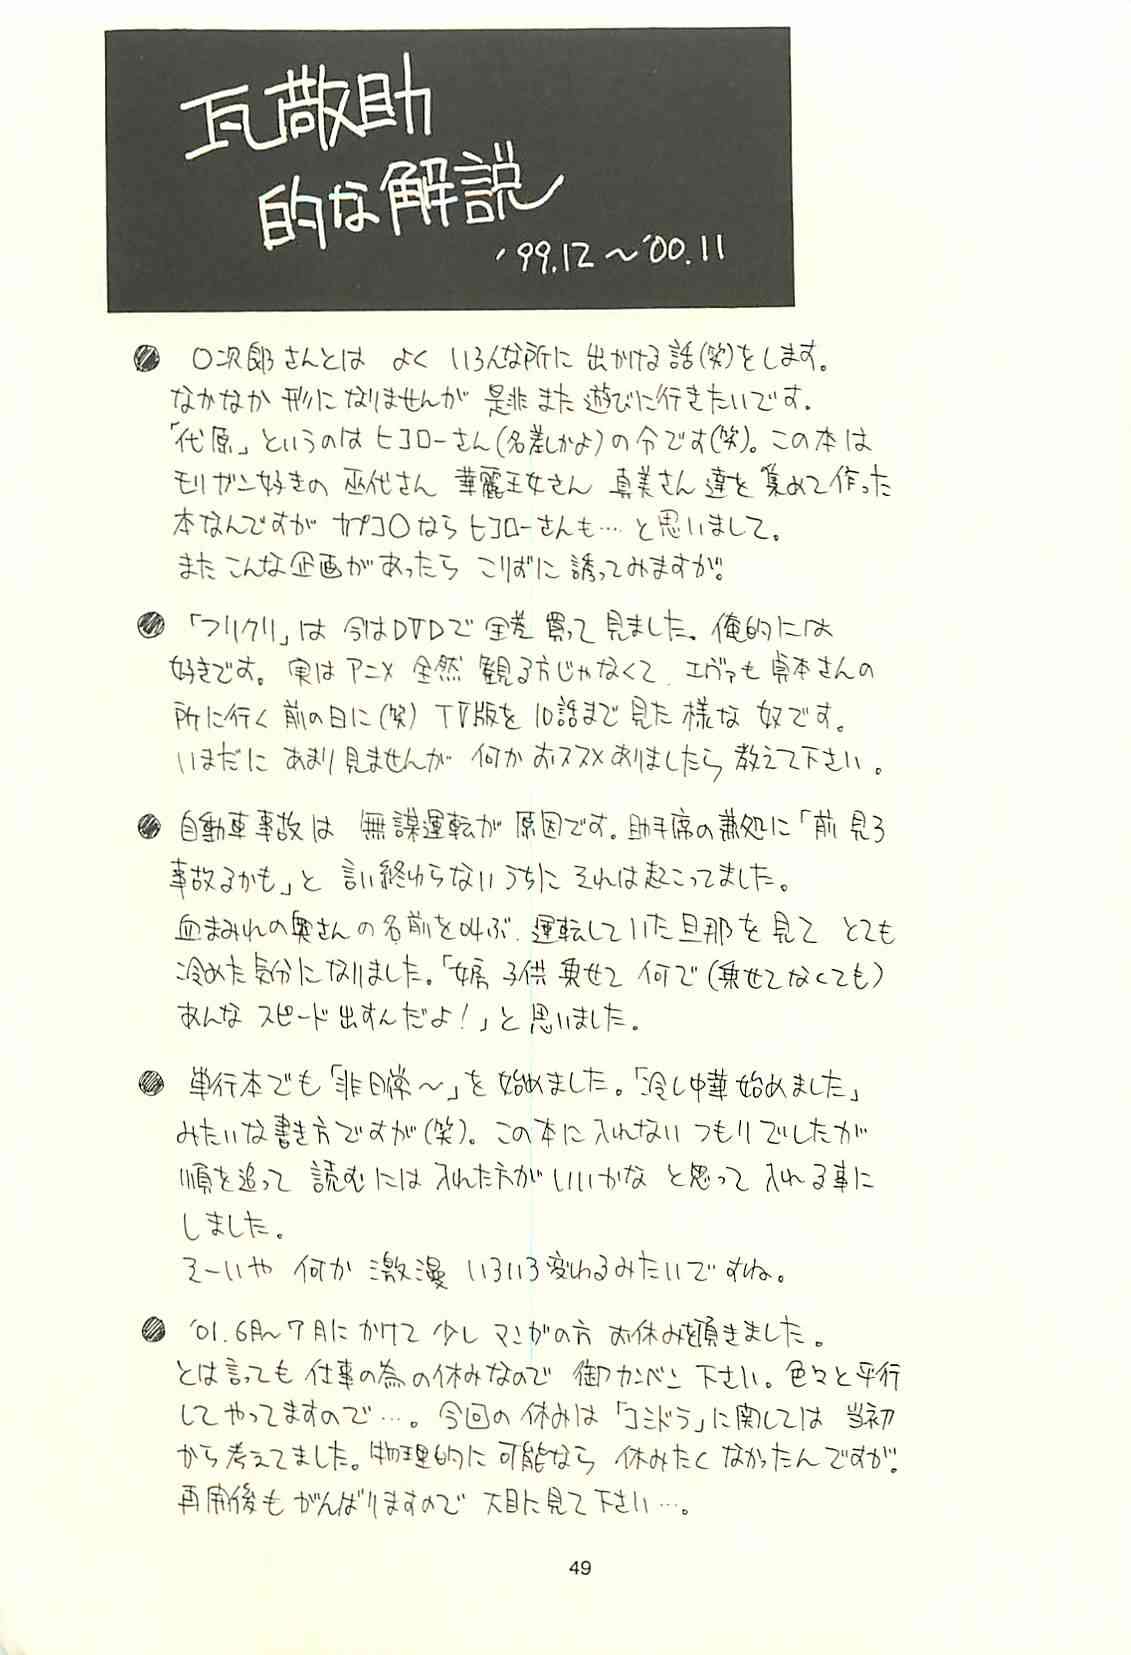 瓦敬助
的な解説
'99.12～'00.11
● 〇次郎さんとは よく いろんな所に 出かける話(笑)をします。
なかなか 形に なりませんが 是非 また 遊びに行きたいです.
「代原」というのは ヒヨローさん(名差しかよ)の 分です(笑)。この本は
モリガン好きの 巫代さん 華麗王女さん 真美さん 達を 集めて 作った
本なんですが カプコ〇なら ヒヨローさんも… と 思いまして。
また こんな 企画が あったら こりずに 誘ってみますが。
● 「フリクリ」は 今はDVDで 全巻 買って 見ました。俺的には
好きです。実は アニメ 全然 観る方じゃなくて、エヴァも 貞本さんの
所に行く 前の日に(笑) TV版を 10話まで 見た 様な 奴です。
いまだに あまり見ませんが 何か おススメありましたら 教えて下さい。
● 自動車事故は 無謀運転が 原因です。助手席の 兼処に「前 見ろ
事故るかも」と 言い終わらないうちに それは起こってました。
血まみれの奥さんの 名前を叫ぶ、運転していた旦那を 見て とても
冷めた 気分に なりました。「女房 子供 乗せて 何で(乗せてなくても)
あんな スピード 出すんだよ!」と 思いました。
● 単行本でも「非日常～」を 始めました。「冷し中華 始めました」
みたいな 書き方ですが(笑)。この本に 入れない つもりでしたが
順を追って 読むには 入れた方が いいかな と思って 入れる事に
しました。
そーいや 何か 激漫 いろいろ変わるみたいですね。
● '01.6月～7月に かけて 少し マンガの方 お休みを頂きました。
とは言っても 仕事の為の休みなので 御カンベン 下さい。色々と平行
してやってますので…。今回の 休みは「コミドラ」に関しては 当初
から 考えてました。物理的に 可能なら 休みたく なかったんですが。
再開後も がんばりますので 大目に見て 下さい…。
49